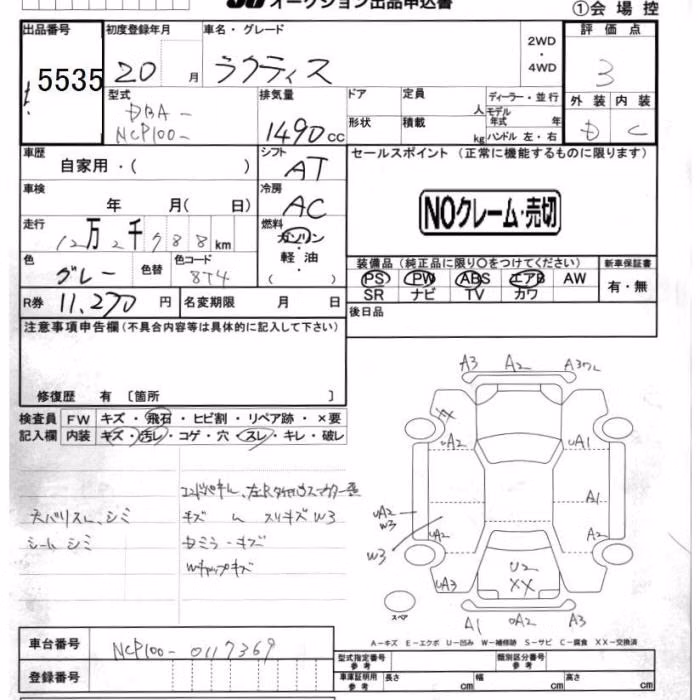 オークション出品申込書
①会場控
出品番号 初度登録年月 車名・グレード 2WD・4WD 評価点
5535 20 月 ラクティス 3
型式 排気量 ドア 定員 人 ディーラー・並行 外装 内装
DBA- NCP100- 1490 cc 形状 積載 kg モデル年式 年 ハンドル 左・右 D C
車歴 シフト セールスポイント (正常に機能するものに限ります)
自家用・( ) AT
車検 冷房
年 月( 日) AC NOクレーム・売切
走行 燃料
12万2千988km ガソリン
色 色替 色コード 軽油 装備品 (純正品に限り○をつけてください) 新車保証書
グレー 8T4 ( ) PS PW ABS エアB AW 有・無
SR ナビ TV カワ
R券 11,270円 名変期限 月 日 後日品
注意事項申告欄(不具合内容等は具体的に記入して下さい)
修復歴 有 〔箇所 〕
検査員 FW キズ・飛石・ヒビ割・リペア跡・×要
記入欄 内装 キズ・汚レ・コゲ・穴・スレ・キレ・破レ
キズ スリキズW3
シミ
シートシミ
ミラーキズ
キャップキズ
A3 A2 A3
UA2 UA1
A1
UA2 W3
UA2 A2
W3
UA3 U2 XX
スペア
A1 UA2 A3
A-キズ E-エクボ U-凹み W-補修跡 S-サビ C-腐食 XX-交換済
車台番号 NCP100-0117369
型式指定番号 参考 類別区分番号 参考
登録番号 車庫証明用 参考 長さ cm 幅 cm 高さ cm